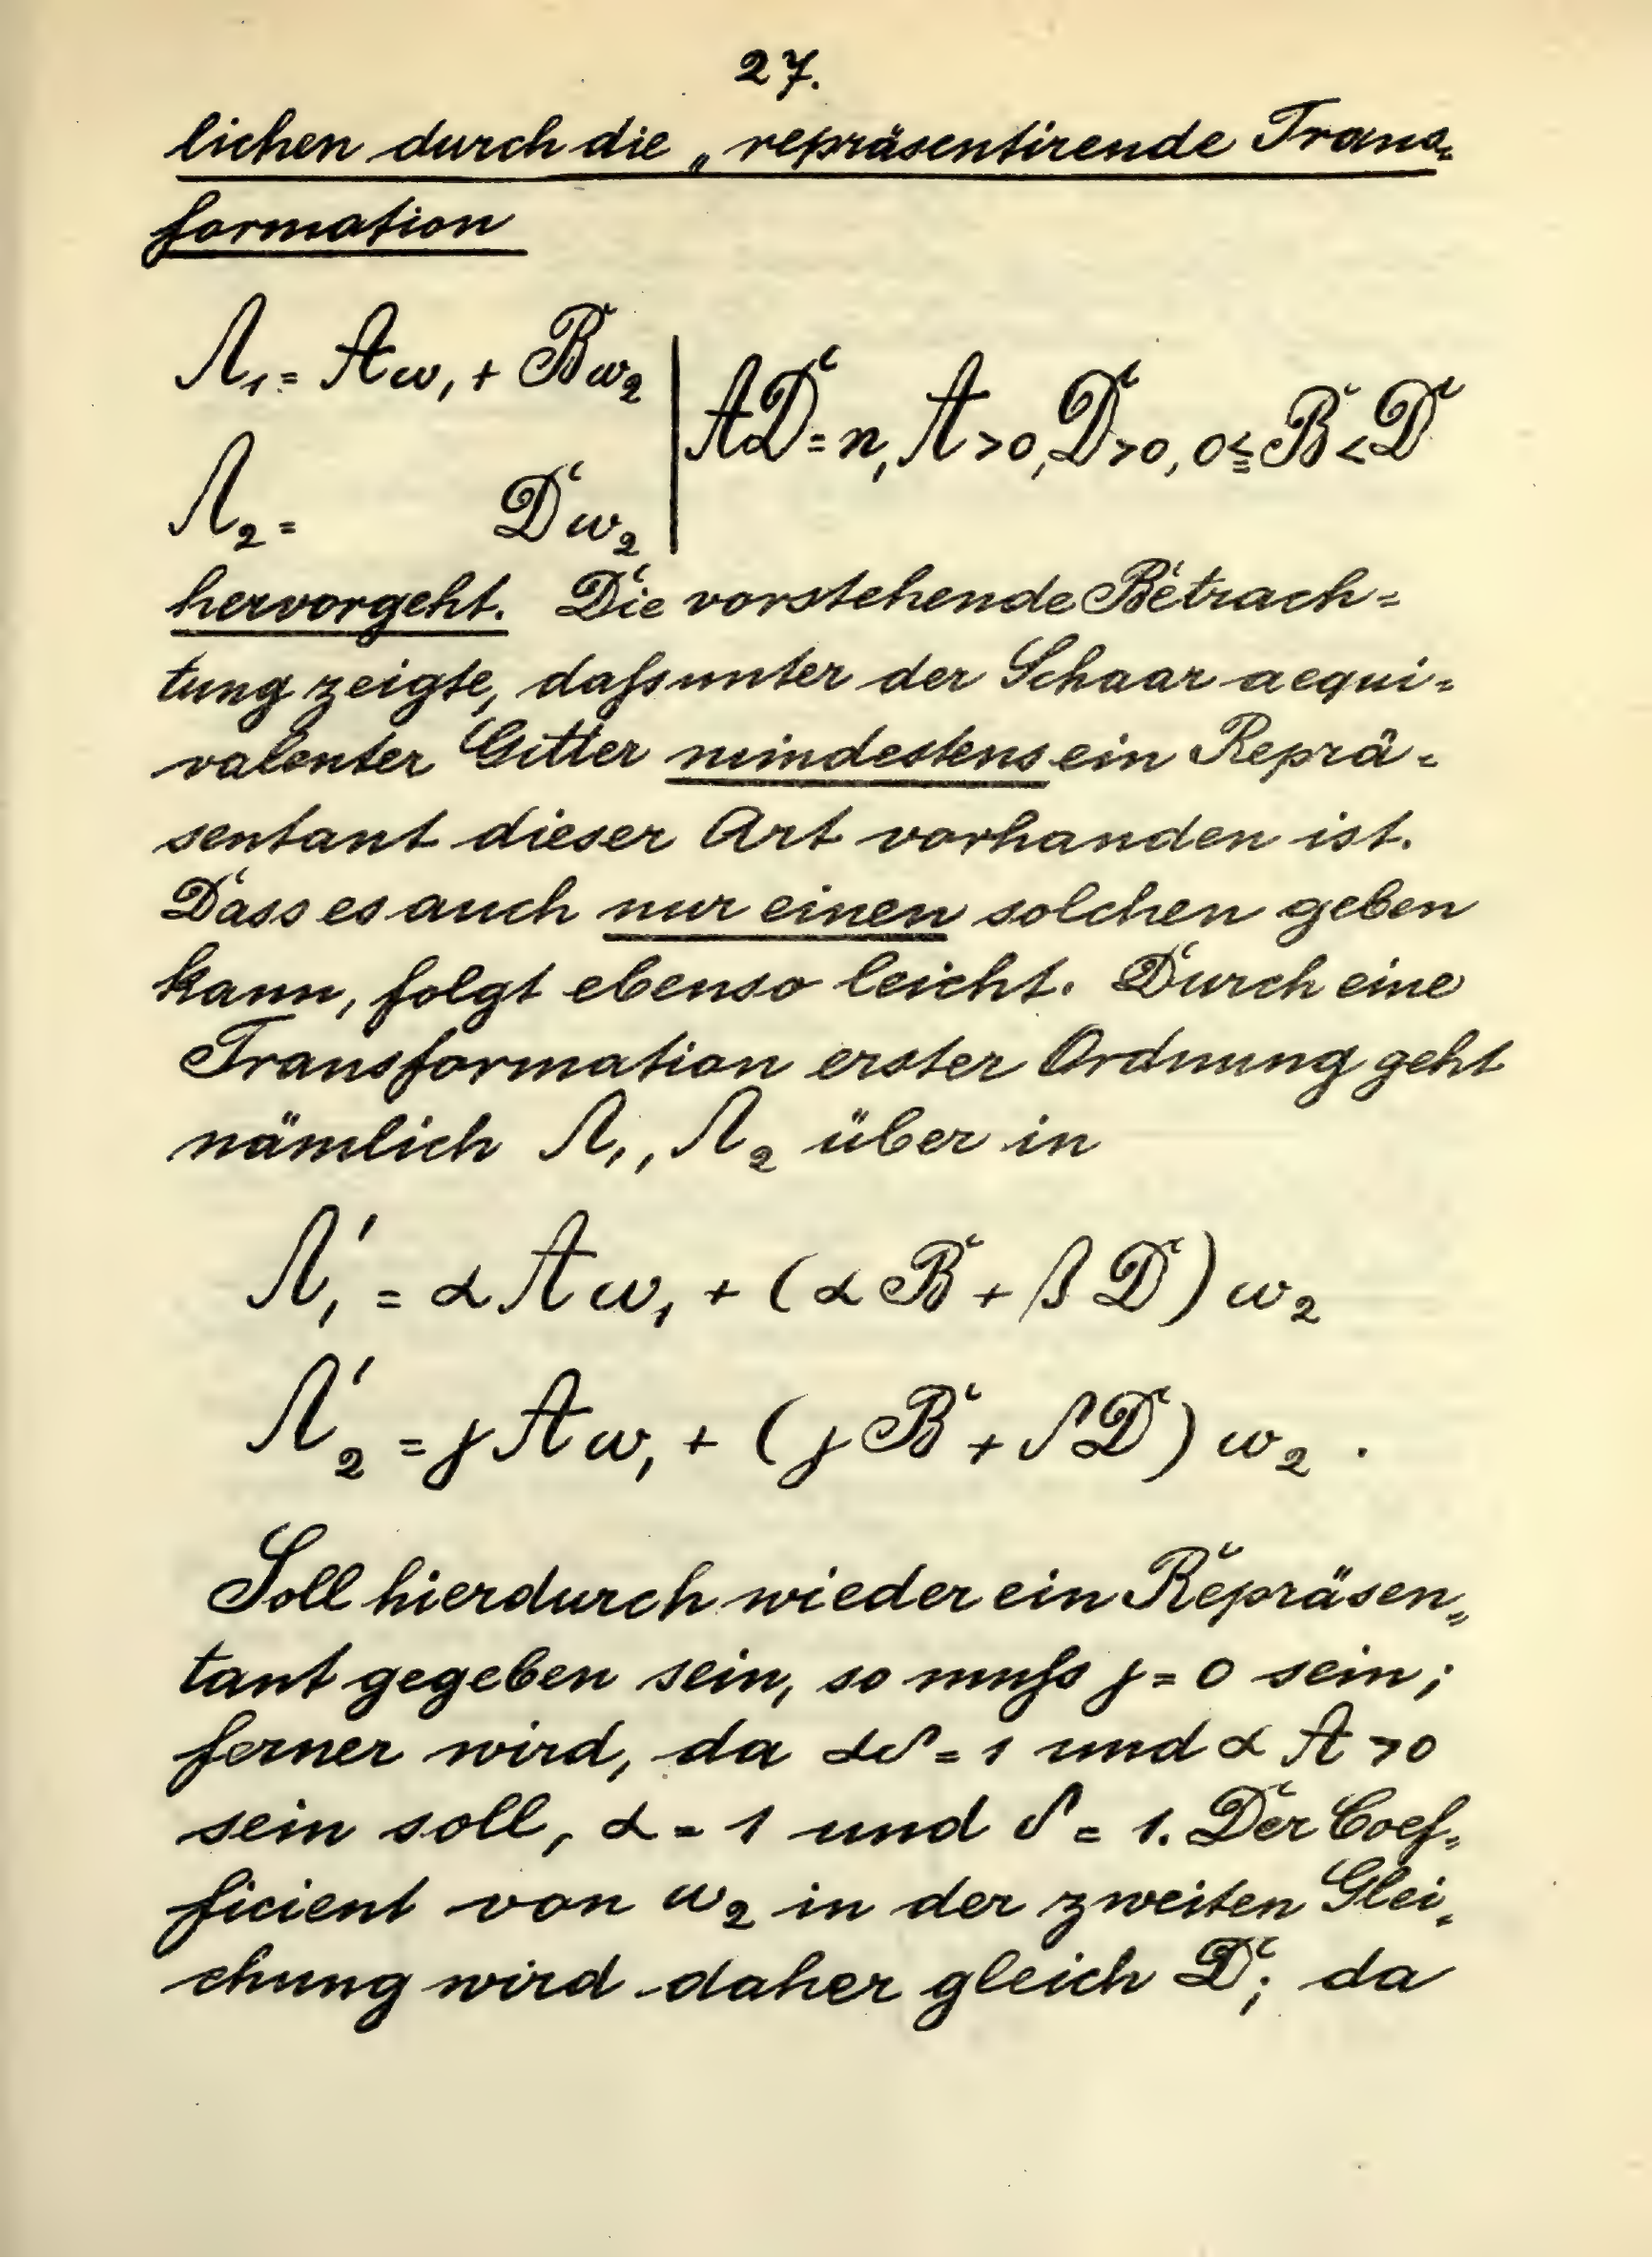 27.
lichen durch die „repräsentirende Trans=
formation
Λ₁ = Aω₁ + Bω₂ | AD = n, A > 0, D > 0, 0 ≦ B < D
Λ₂ = Dω₂
hervorgeht. Die vorstehende Betrach=
tung zeigte, daſs unter der Schaar aequi=
valenter Gitter mindestens ein Reprä=
sentant dieser Art vorhanden ist.
Dass es auch nur einen solchen geben
kann, folgt ebenso leicht. Durch eine
Transformation erster Ordnung geht
nämlich Λ₁, Λ₂ über in
Λ₁' = αAω₁ + (αB + βD)ω₂
Λ₂' = γAω₁ + (γB + δD)ω₂ .
Soll hierdurch wieder ein Repräsen=
tant gegeben sein, so muſs γ = 0 sein;
ferner wird, da αδ = 1 und αA > 0
sein soll, α = 1 und δ = 1. Der Coef=
ficient von ω₂ in der zweiten Glei=
chung wird daher gleich D; da